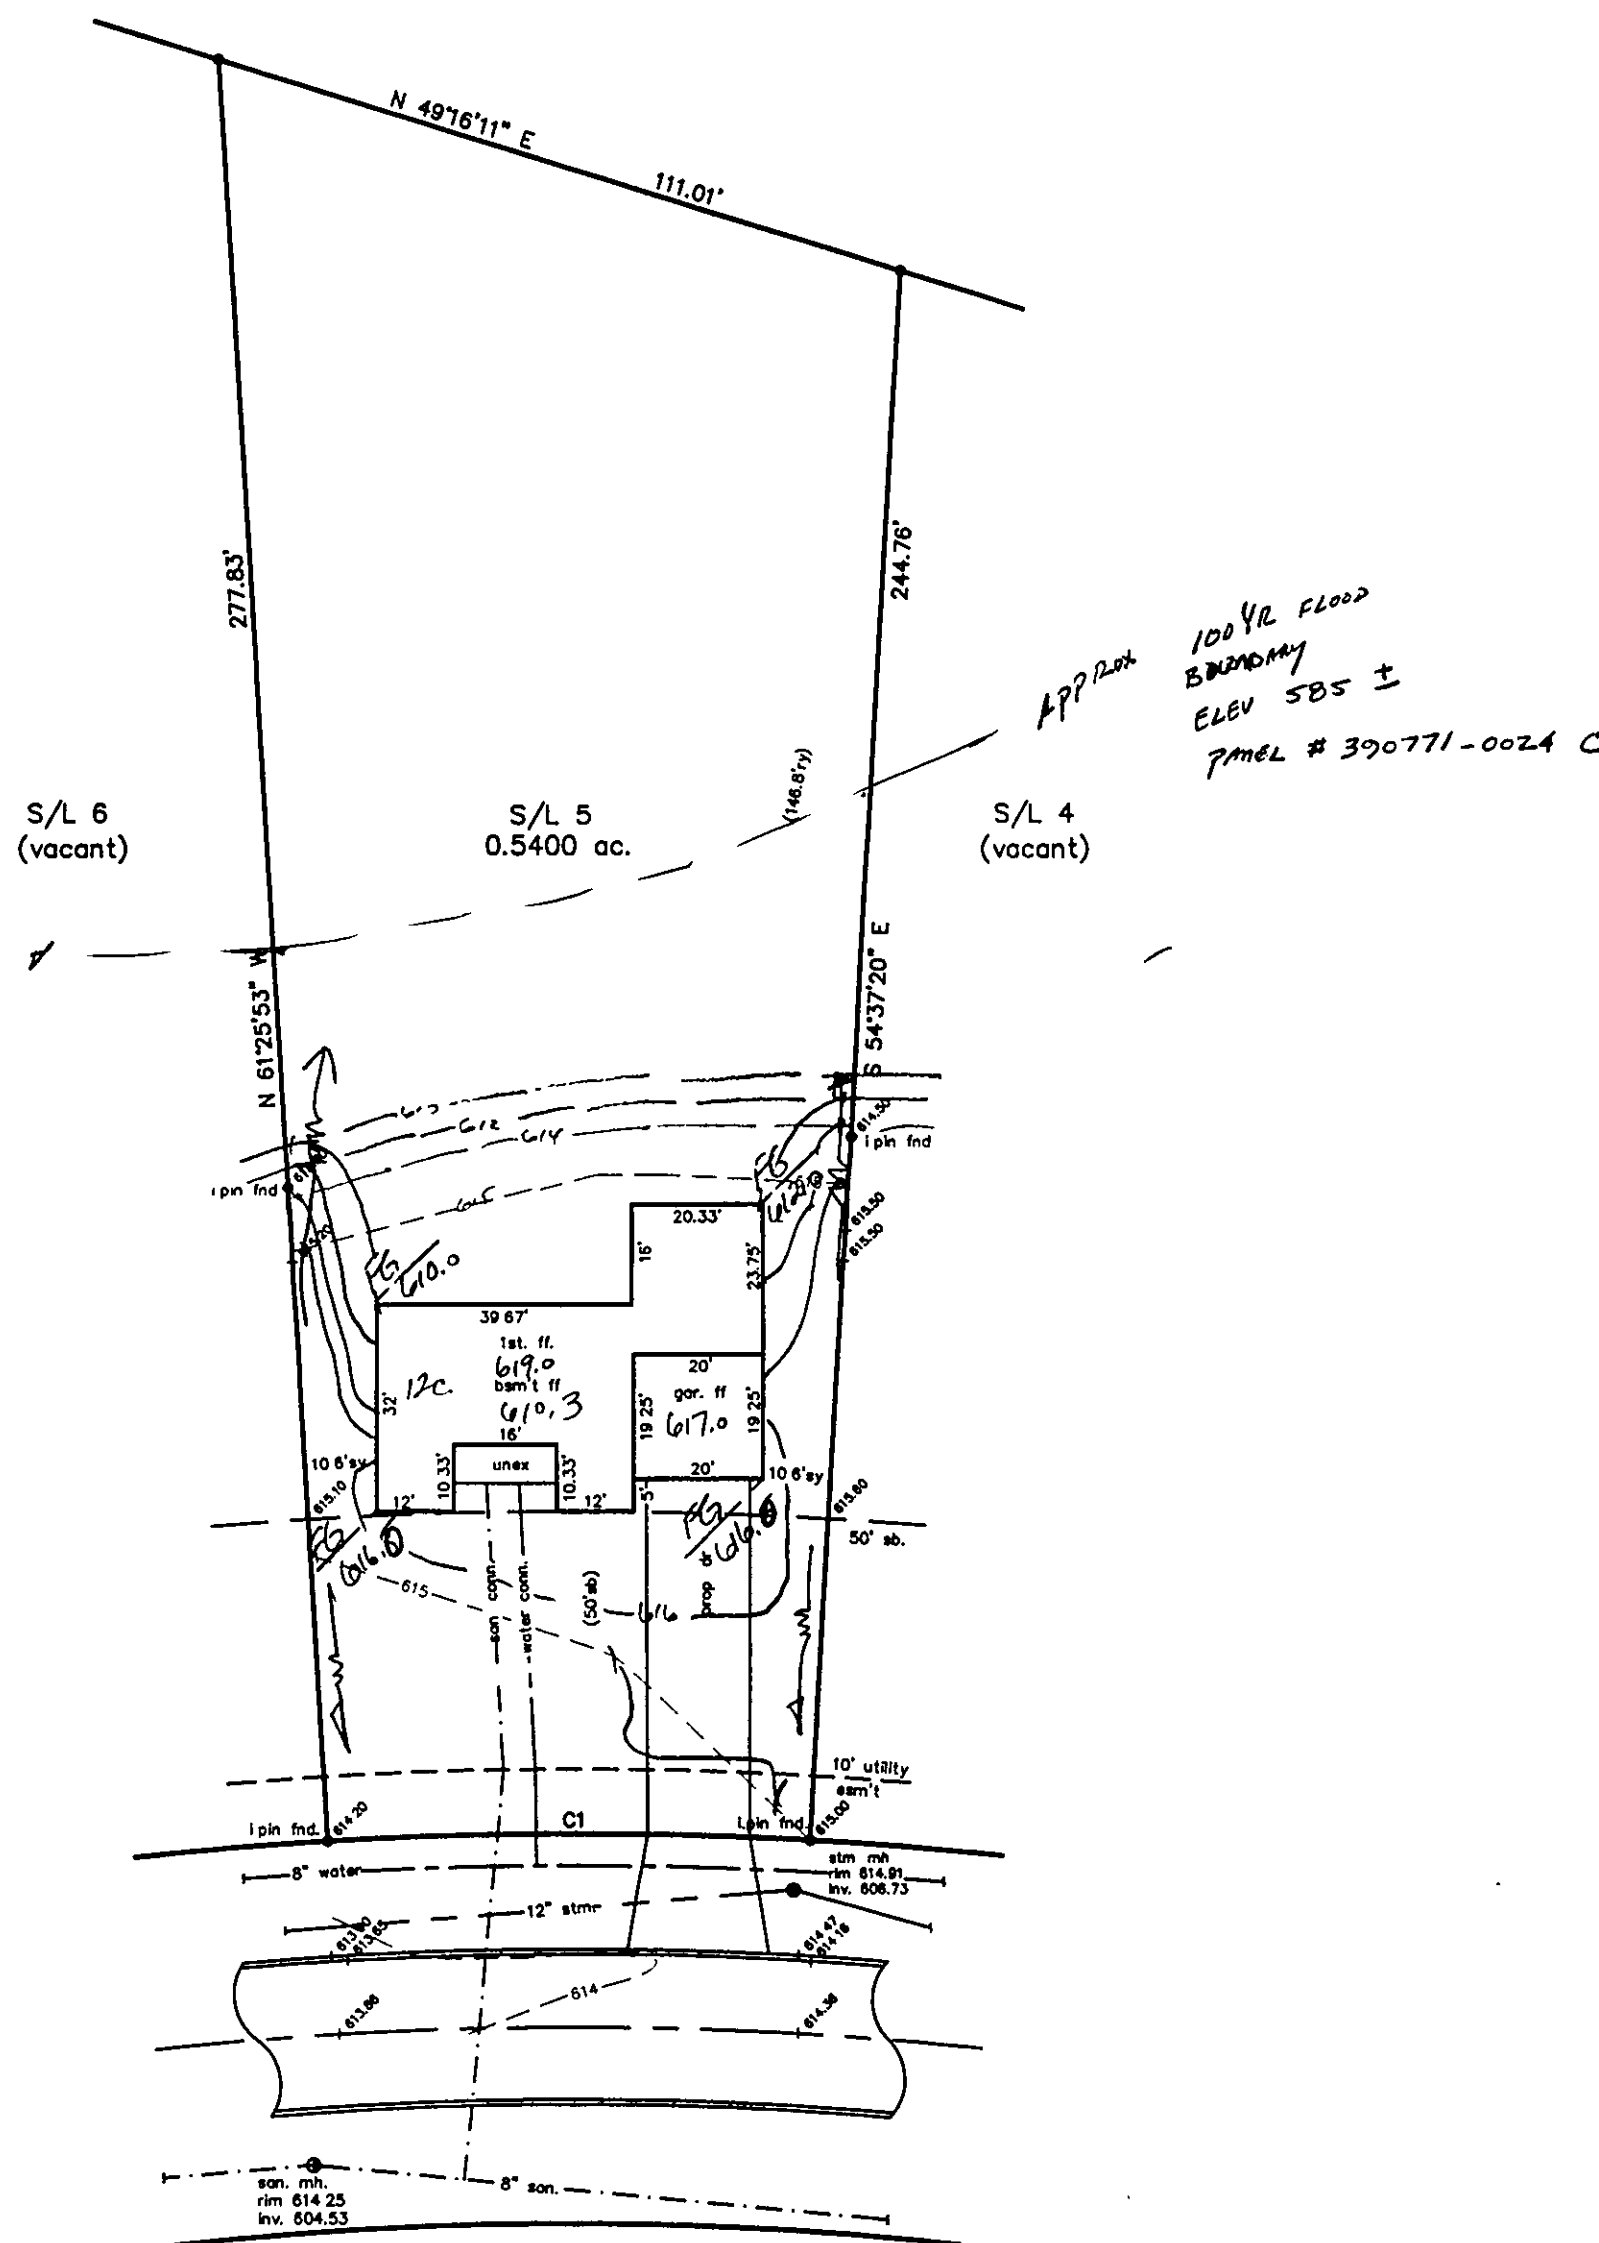 N 49°16'11" E
111.01'
277.83'
244.76'
APPROX 100 YR FLOOD
BOUNDARY
ELEV 585 ±
PANEL # 390771-0024 C
(146.8'ry)
S/L 6
(vacant)
S/L 5
0.5400 ac.
S/L 4
(vacant)
N 61°25'53" W
S 54°37'20" E
612
614
614.50
i pin fnd
i pin fnd
615.50
615.50
FG
612.0
FG
610.0
20.33'
16'
23.75'
39 67'
1st. ff.
619.0
bsm't ff
610.3
12c.
32'
20'
gar. ff
617.0
19 25'
19 25'
20'
16'
unex
10 33'
10.33'
12'
12'
5'
10 6'sy
10 6'sy
615.10
615.60
50' sb.
FG
616.0
FG
616.0
615
616
san conn.
water conn.
(50'sb)
prop dr
10' utility
esm't
i pin fnd.
614 20
C1
i.pin fnd.
615.00
8" water
stm mh
rim 614.91
inv. 606.73
12" stm
613.65
614.47
614.16
614
613.86
614.36
san. mh.
rim 614 25
inv. 604.53
8" san.